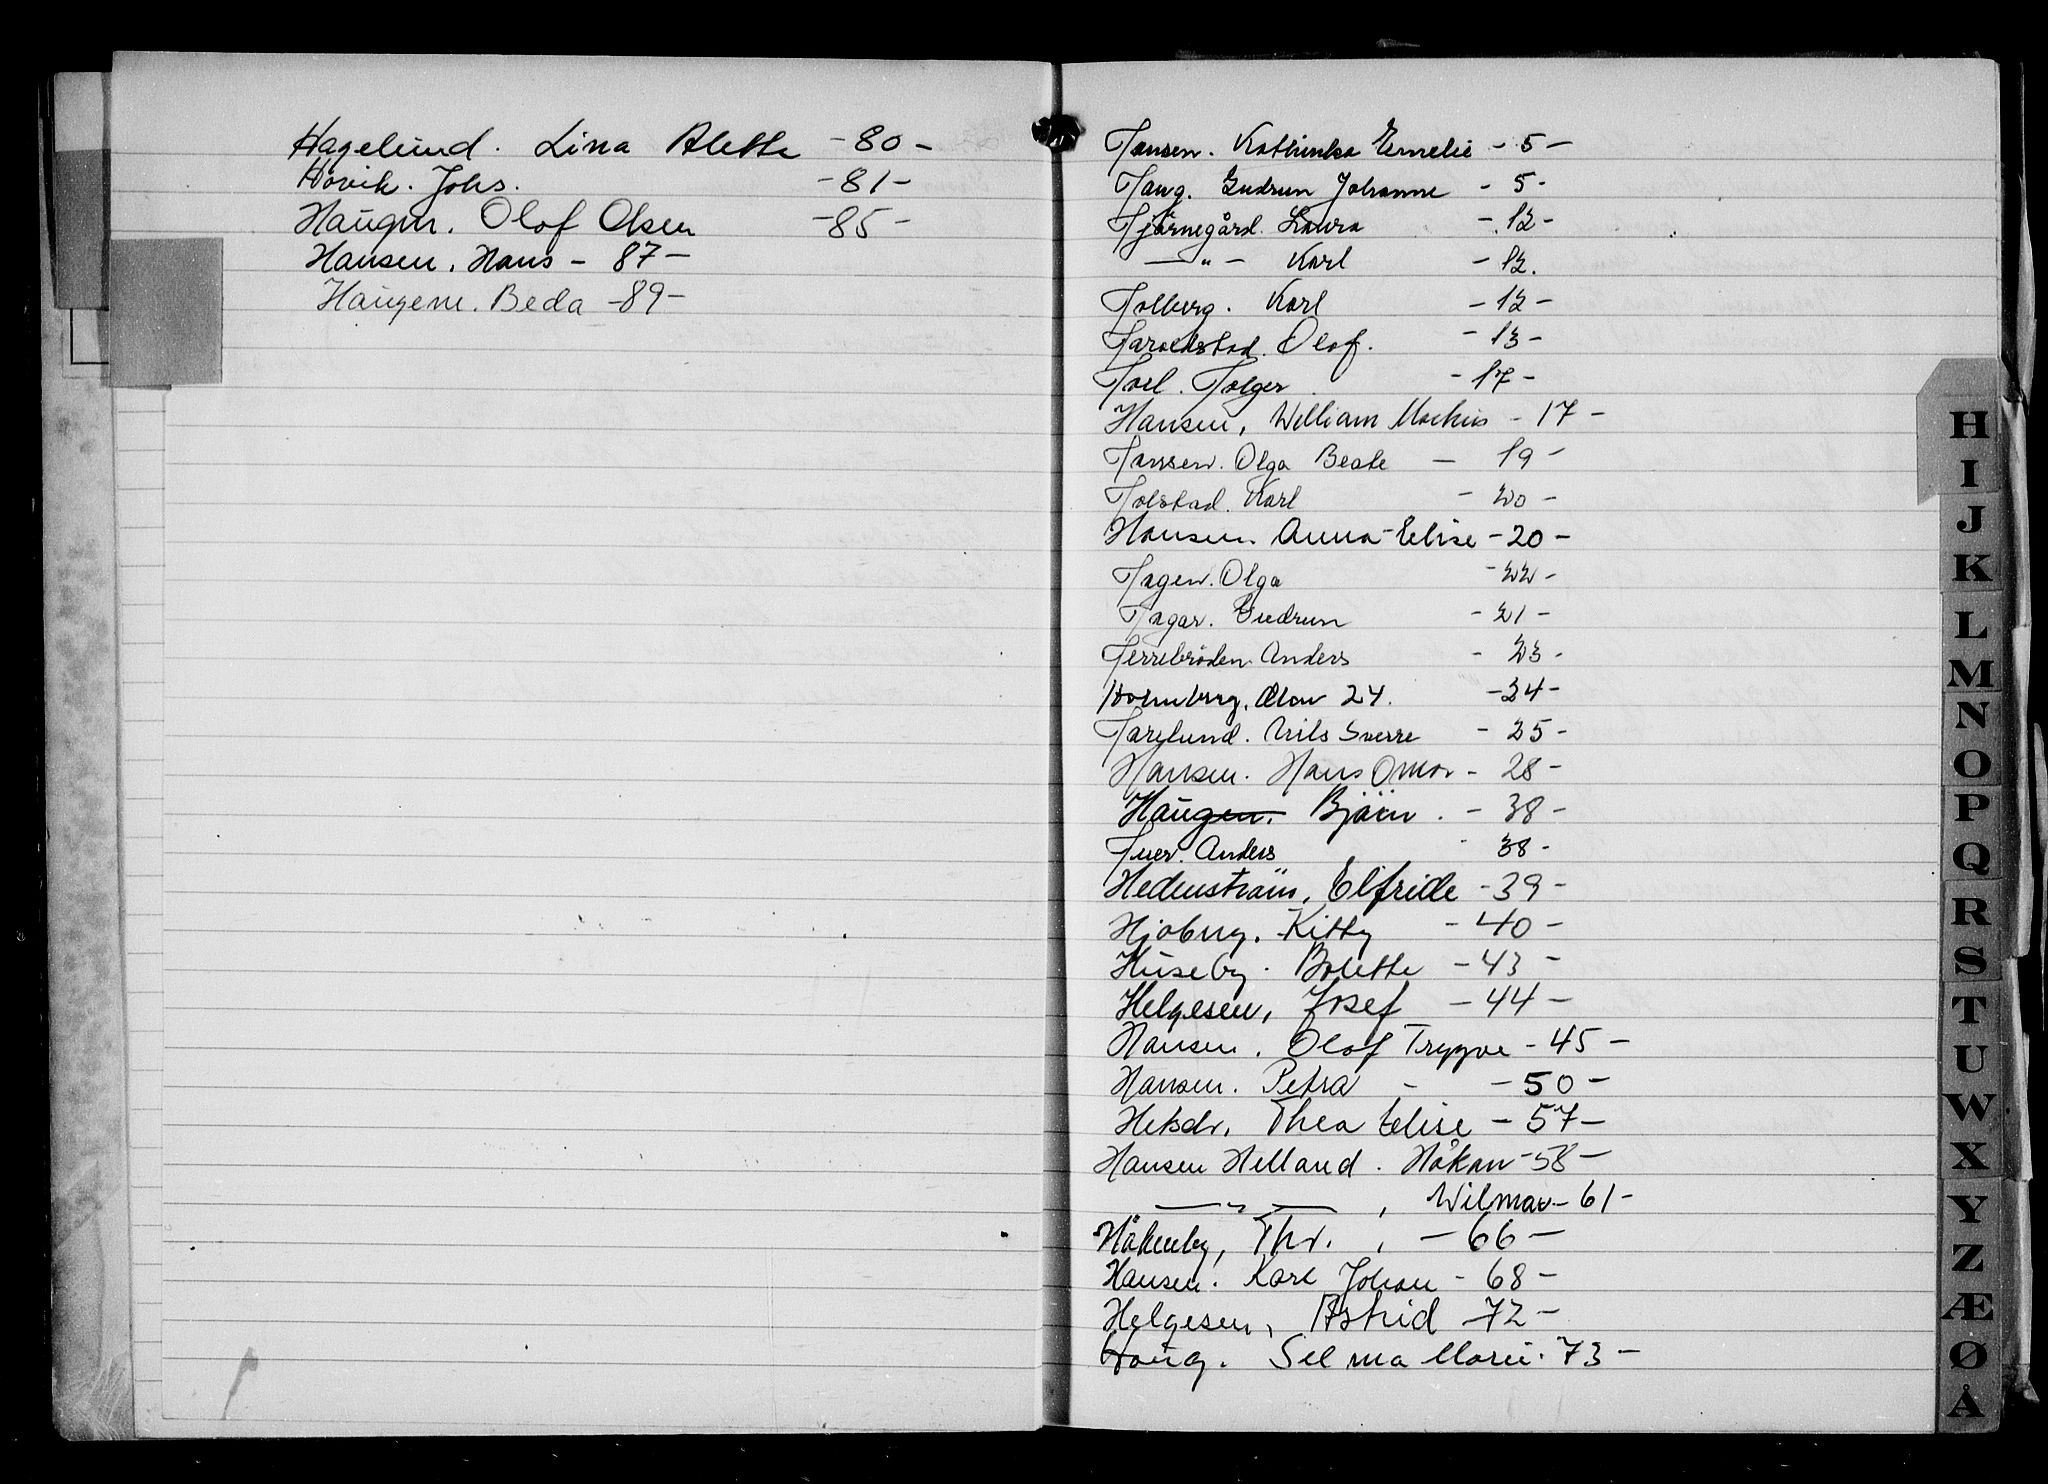 Hagelund. Lina Alette -80-
Hovik. Johs. -81-
Haugen. Olof Olsen -85-
Hansen, Hans - 87-
Haugene. Beda -89-
Hansen. Kathinka Emelie - 5-
Haug. Gudrun Johanne - 5-
Hjärnegård. Laura - 12-
—"— Karl - 12.
Holberg. Karl - 12-
Haroldstad. Olof. - 13-
Hoel. Holger - 17-
Hansen, William Markus - 17-
Hanssen. Olga Beate — 19-
Holstad. Karl - 20-
Hansen. Anna-Elise -20-
Hagen. Olga -22-
Hagar. Gudrun - 21-
Herrebröden. Anders - 23-
Holmberg. Olav 24. -24-
Harlund. Nils Sverre - 25-
Hansen. Hans Omar - 28-
Haugen. Björn. - 38-
Huer. Anders 38-
Hedenström, Elfride -39-
Hjoberg. Kitty -40-
Huseby. Bolette -43-
Helgesen, Josef -44-
Hansen, Olof Trygve -45-
Hansen. Petra - -50-
Thea Elise -57-
Hansen Helland. Håkon -58-
—"—, Wilmar -61-
Håkenby, Thv. -66-
Hansen. Karl Johan - 68-
Helgesen, Astrid -72-
Haug. Selma Marie. 73-
H
I
J
K
L
M
N
O
P
Q
R
S
T
U
W
X
Y
Z
Æ
Ø
Å